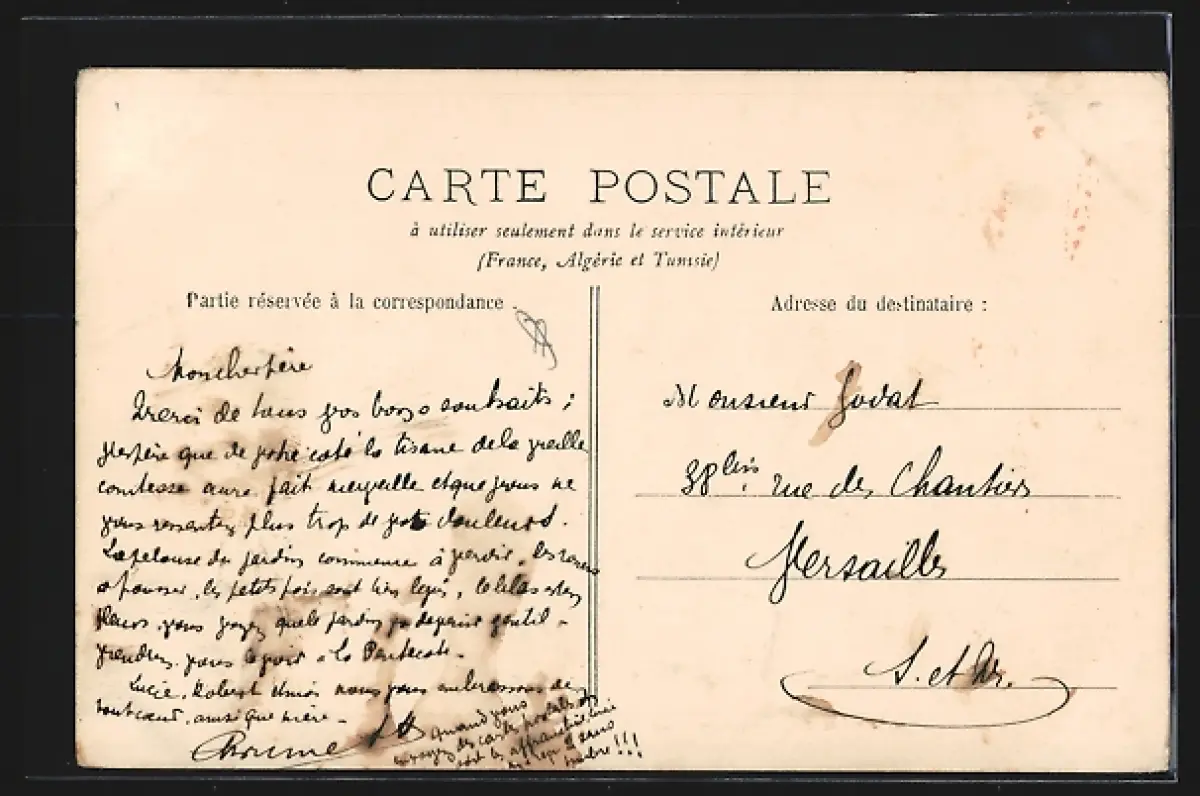 CARTE POSTALE
à utiliser seulement dans le service intérieur
(France, Algérie et Tunisie)
Partie réservée à la correspondance
Mon cher père
Merci de tous vos bons souhaits ;
j'espère que de votre côté la tisane de la vieille
comtesse aura fait merveille et que vous ne
vous ressentez plus trop de vos douleurs.
La pelouse du jardin commence à verdir, les rosiers
à pousser, les petits pois sont bien levés, le lilas est en
fleurs. vous voyez que le jardin va devenir gentil -
viendrez vous le voir à la Pentecôte -
Lucie, Robert et moi nous vous embrassons de
tout cœur, ainsi que mère -
quand vous
envoyez des cartes postales
il faut les affranchir, Lucie
timbre !!!
Adresse du destinataire :
Monsieur Godat
38 bis rue des Chantiers
Versailles
S. et O.